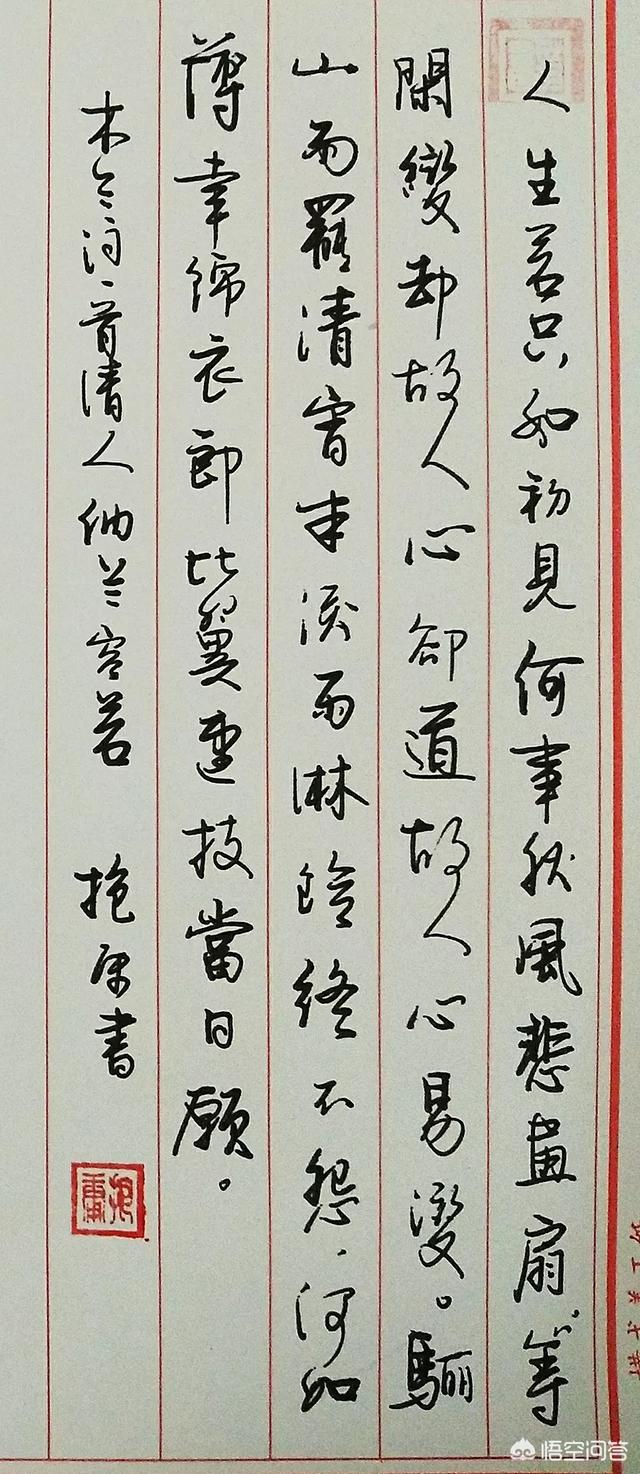 人生若只如初見何事秋風悲畫扇等
閑變却故人心卻道故人心易變。驪
山雨罷清宵半淚雨淋鈴終不怨.何如
薄幸錦衣郎比翼連枝當日願。
木兰词一首清人纳兰容若 抱書
悟空问答